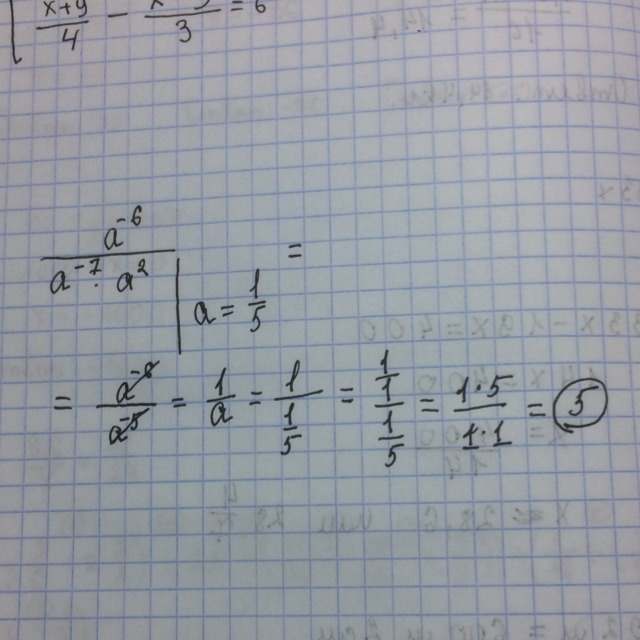 (x+y)/4 - /3 = 6
a^-6 / (a^-7 · a^2) | a = 1/5 =
= a^-6 / a^-5 = 1/a = 1/(1/5) = (1/1)/(1/5) = (1·5)/(1·1) = 5